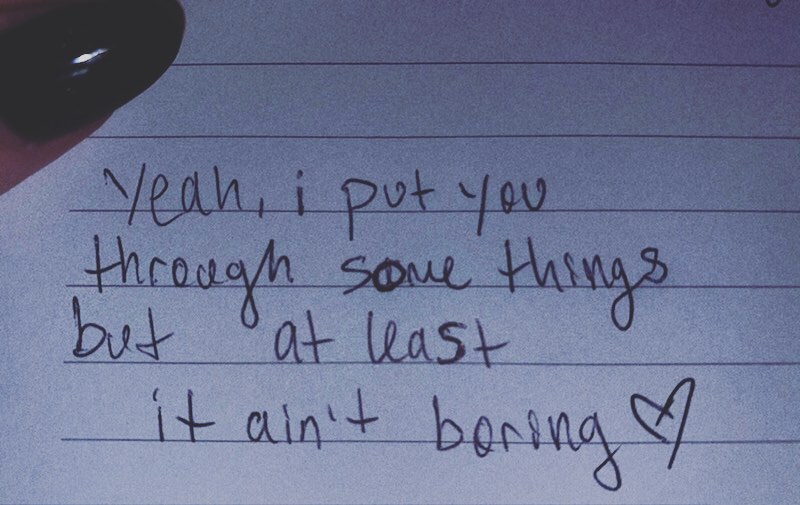 Yeah, i put you
through some things
but at least
it ain't boring ♡